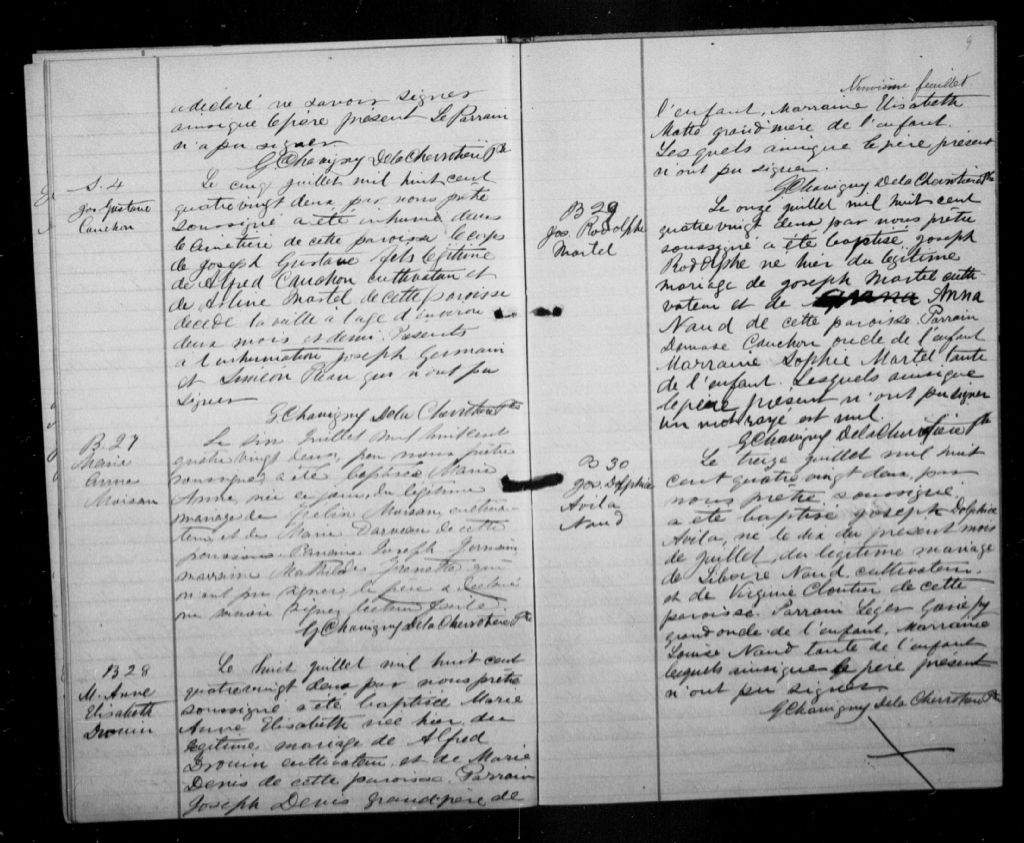 a déclaré ne savoir signer
ainsi que le père présent Le Parrain
n'a pu signer
G Chavigny De la Chevrotière Ptre
S. 4
Jos Gustave
Cauchon
Le cinq juillet mil huit cent
quatre vingt deux, par nous prêtre
soussigné a été inhumé dans
le cimetière de cette paroisse le corps
de Joseph Gustave fils légitime
de Alfred Cauchon cultivateur et
de Arline Martel de cette paroisse
décédé la veille à l'age d'environ
deux mois et demi. Présents
a l'inhumation Joseph Germain
et Siméon Piau qui n'ont pu
signer
G Chavigny De la Chevrotière Ptre
B 27
Marie
Anne
Moisan
Le six Juillet mil huit cent
quatre vingt deux, par nous prêtre
soussigné a été baptisée Marie
Anne née ce jour du légitime
mariage de Moisan cultiva-
teur et de Marie Darveau de cette
paroisse Parrain Joseph Germain
marraine Mathilde qui
n'ont pu signer le père a déclaré
ne savoir signer lecture faite.
G Chavigny De la Chevrotière Ptre
B 28
M. Anne
Elisabeth
Drouin
Le huit juillet mil huit cent
quatre vingt deux par nous prêtre
soussigné a été baptisée Marie
Anne Elisabeth née hier du
légitime mariage de Alfred
Drouin cultivateur et de Marie
Denis de cette paroisse. Parrain
Joseph Denis grand-père de
9
Neuvième feuillet
l'enfant, Marraine Elisabeth
Matte grand'mère de l'enfant.
Lesquels ainsi que le père présent
n'ont pu signer.
G Chavigny De la Chevrotière Ptre
B 29
Jos. Rodolphe
Martel
Le onze juillet mil huit cent
quatre vingt deux par nous prêtre
soussigné a été baptisé Joseph
Rodolphe né hier du légitime
mariage de Joseph Martel culti
vateur et de Anna
Naud de cette paroisse. Parrain
Damase Cauchon oncle de l'enfant
Marraine Sophie Martel tante
de l'enfant. Lesquels ainsi que
le père présent n'ont pu signer
Un mot rayé est nul.
G Chavigny De la Chevrotière Ptre
B 30
Jos. Dolphice
Avila
Naud
Le treize juillet mil huit
cent quatre vingt deux par
nous prêtre soussigné
a été baptisé Joseph Dolphice
Avila, né le dix du présent mois
de juillet, du légitime mariage
de Liboire Naud, cultivateur,
et de Virginie Cloutier de cette
paroisse. Parrain Leger
grand oncle de l'enfant, Marraine
Louise Naud tante de l'enfant
lesquels ainsi que le père présent
n'ont pu signer
G Chavigny De la Chevrotière Ptre